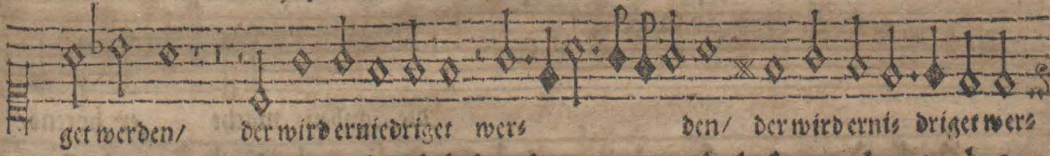 get werden/ der wird erniedriget wer⸗ den/ der wird erni⸗ driget wer⸗